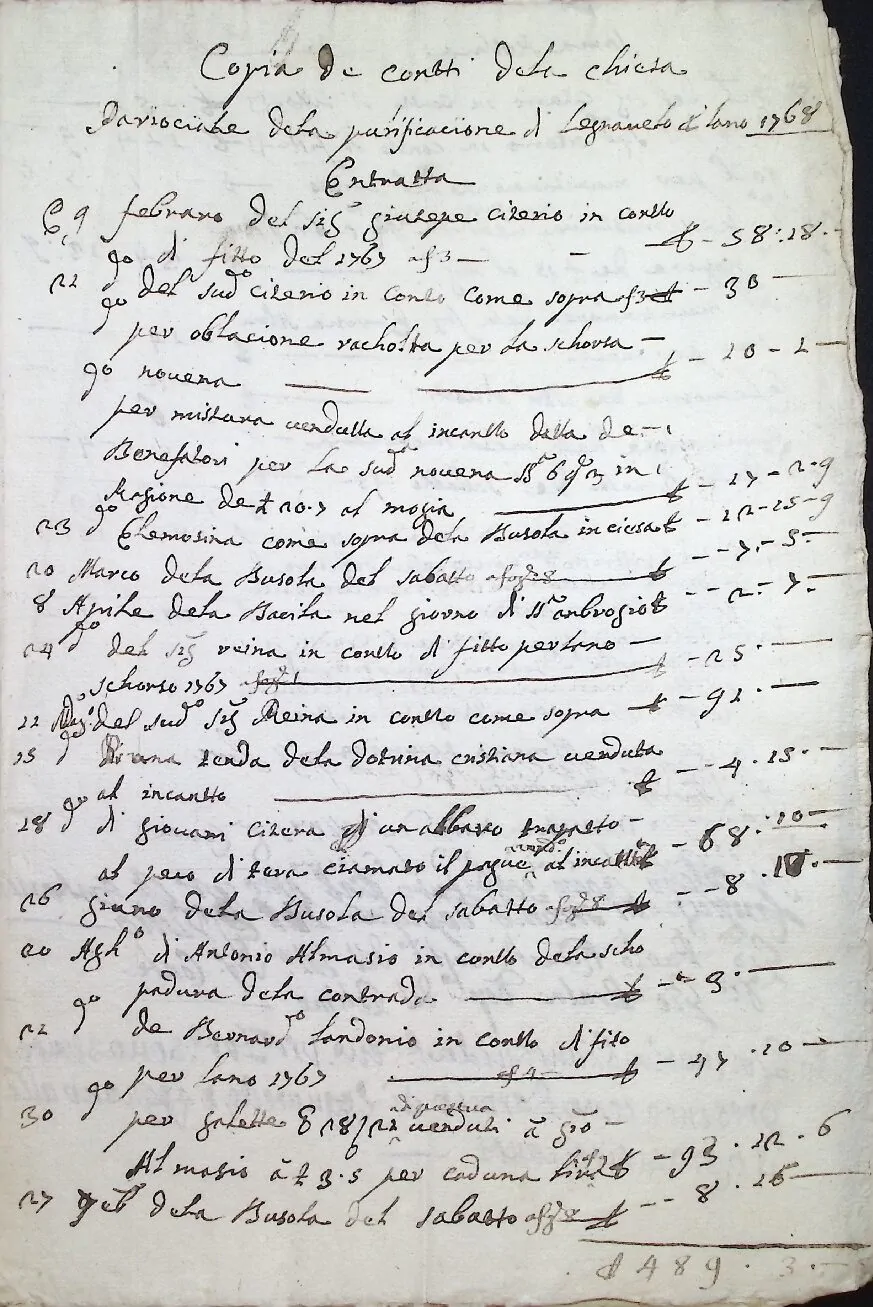 Copia de contti dela chiesa
Parociale dela purificacione di Legnanelo di lano 1768
Entratta
9 febraro del sig giusepe citerio in contto
di fitto del 1767 £ - 58:18.
22 do del sudo citerio in conto come sopra £ - 30
do per oblacione racholta per la schorsa -
novena £ - 10 - 1
per mistura vendutta al incantto della de
Benefatori per la suda novena in
Ragione de £ 20.7 al mogia £ - 17 - 2 - 9
23 do Elemosina come sopra dela Busola in ciesa £ - 12 - 15 - 9
20 Marco dela Busola del sabatto £ - - 7. - 5. -
8 Aprile dela Bacila nel giorno di S. ambrogio £ - - 2. - 7. -
24 do del sig reina in contto di fitto per lano -
schorso 1767 £ - 25. -
11 Mag. del sudo sig Reina in contto come sopra £ - 91. -
15 do una tenda dela dotrina cristiana venduta
al incantto £ - - 4. 15. -
18 do di giovani citera di un albero
al peco di tera ciamato il al incatto £ - 68: 10 -
26 giuno dela Busola del sabatto £ - - 8.
20 Agho di Antonio Almasio in contto dela scho
padura dela contrada £ - - 3. -
22 do de Bernardo landonio in contto di fito
per lano 1767 £ - 47. 10 -
30 do per galette venduti à gio -
Almasio à £ 3.5 per caduna £ - 93. 12. 6
27 dela Busola del sabatto £ - - 8. 16 -
£ 489. 3. -